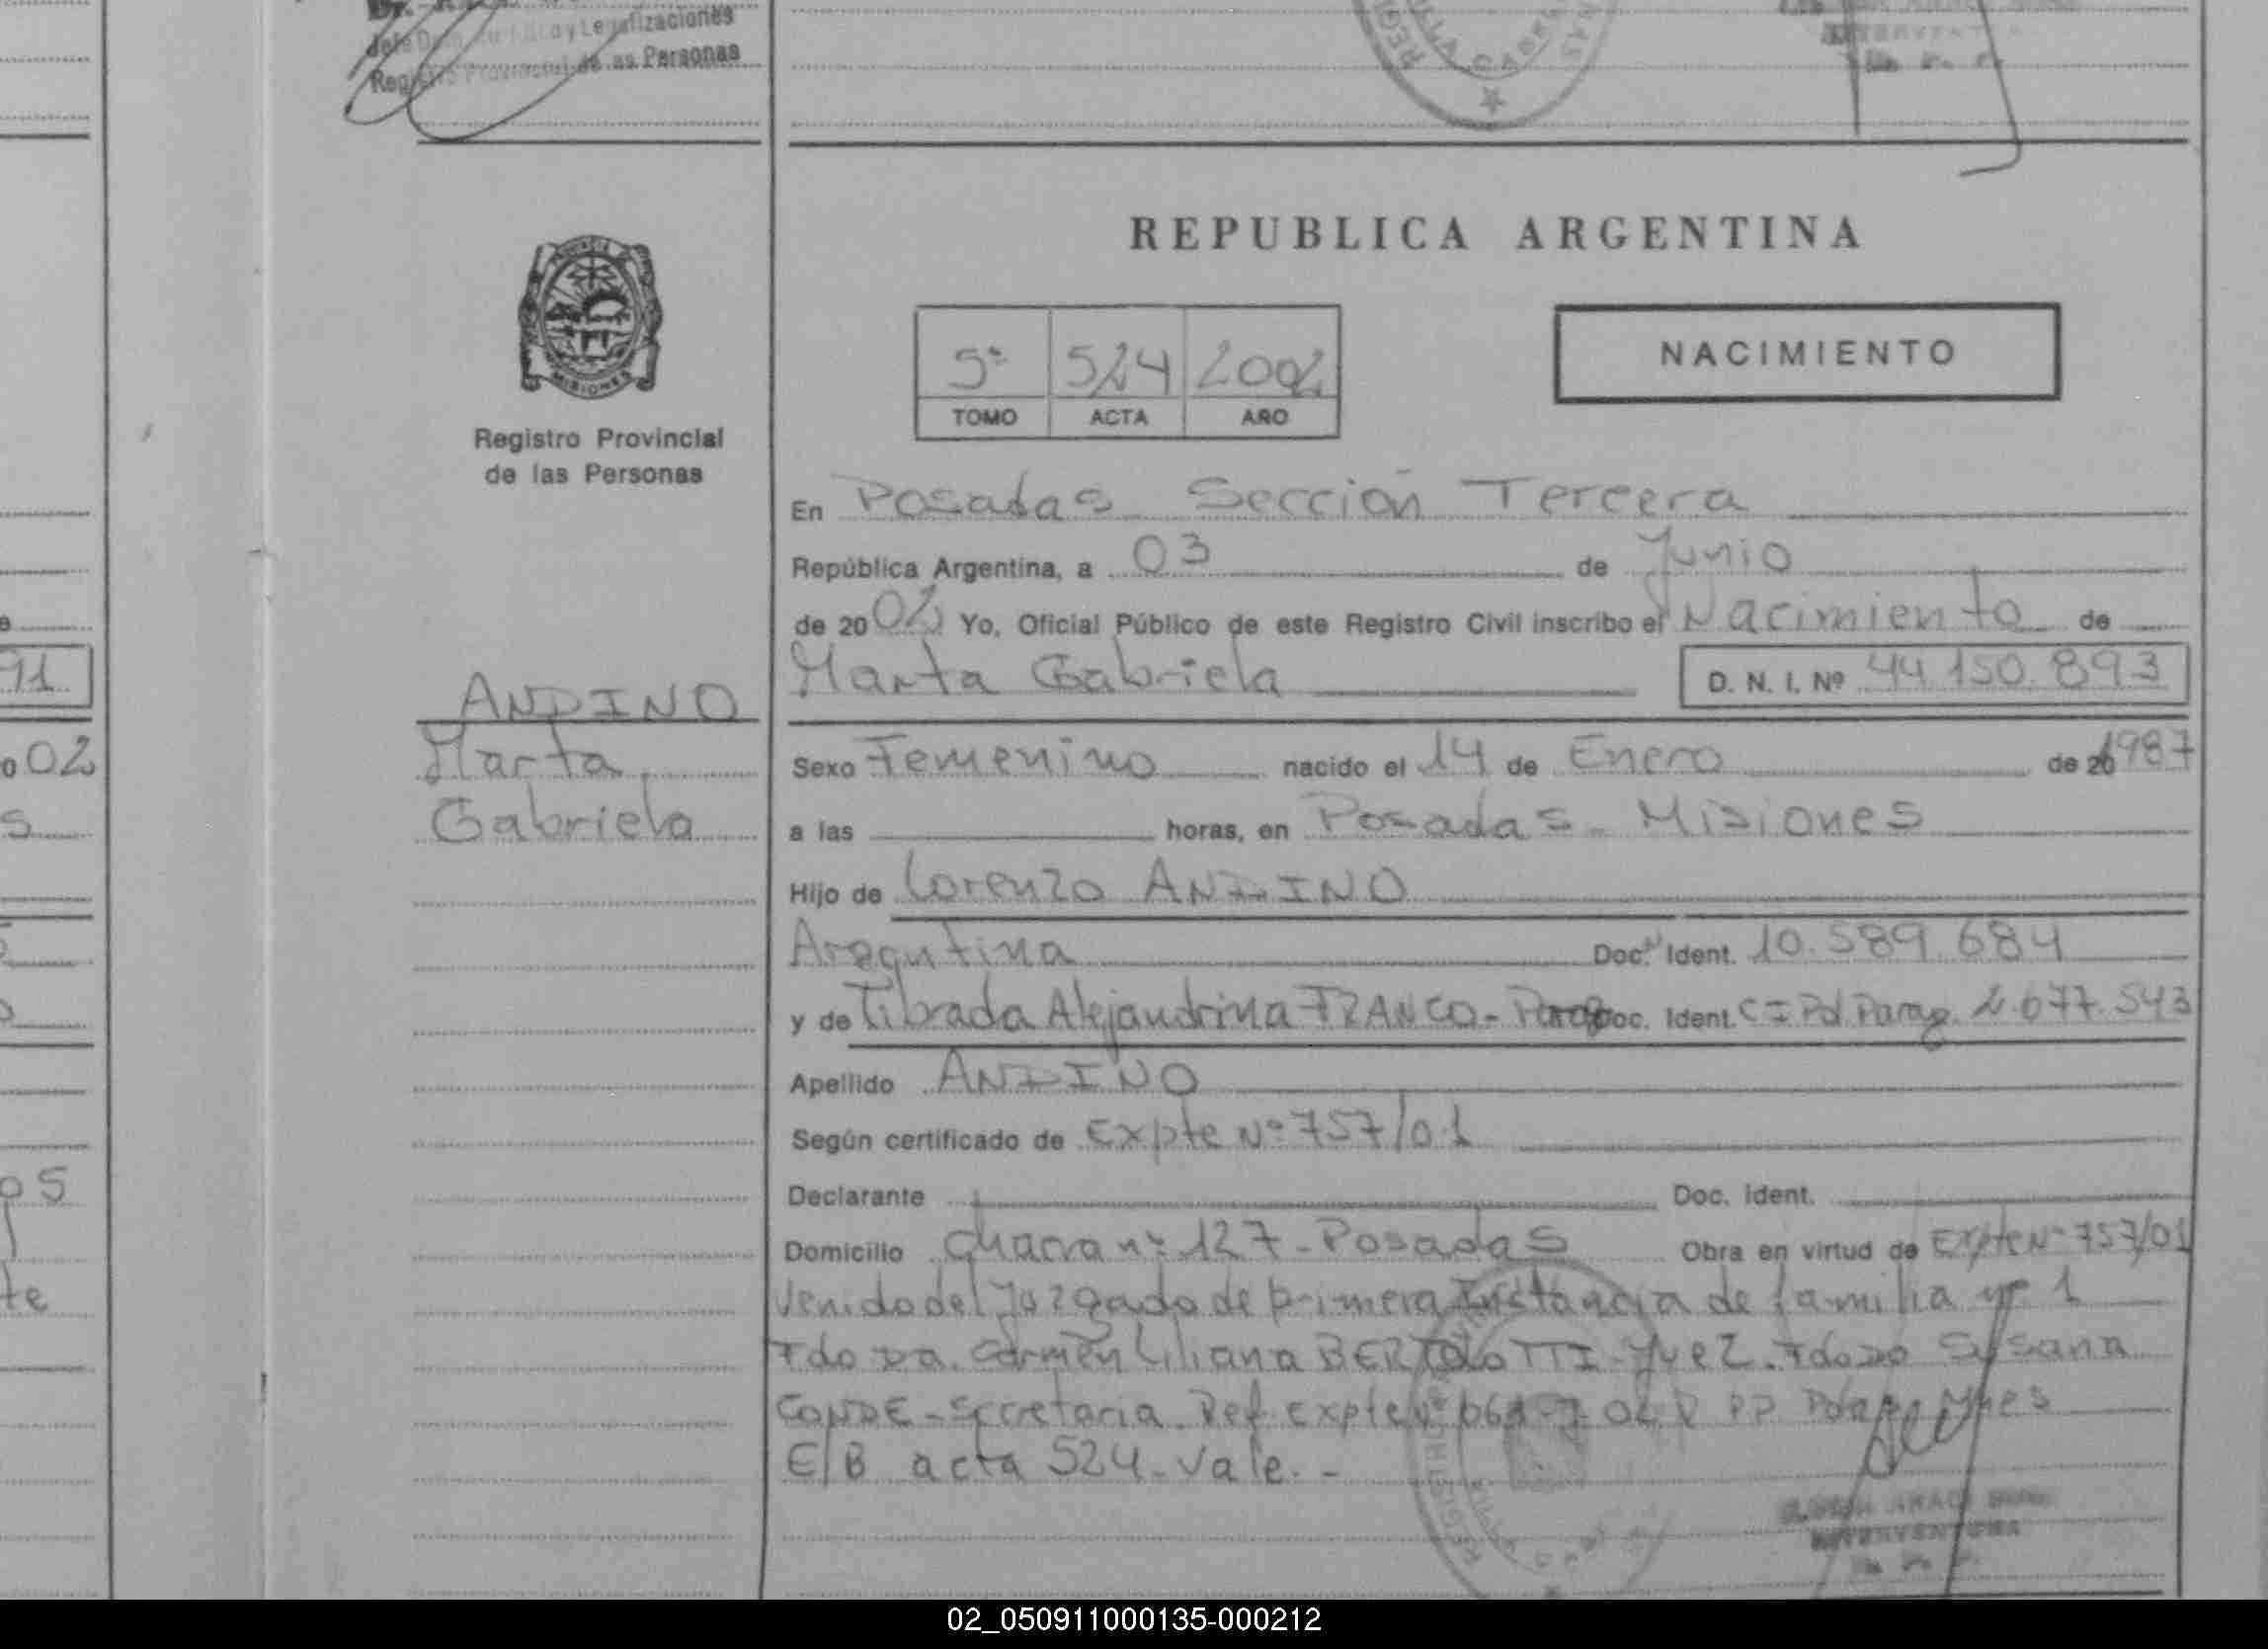 y Legalizaciones
Registro Provincial de las Personas
REPUBLICA ARGENTINA
5º 524 2002
TOMO ACTA AÑO
NACIMIENTO
MISIONES
Registro Provincial
de las Personas
En Posadas Sección Tercera
República Argentina, a 03 de Junio
de 2002 Yo, Oficial Público de este Registro Civil inscribo el Nacimiento de
Marta Gabriela D. N. I. Nº 44.150.893
ANDINO
Marta
Gabriela
Sexo Femenino nacido el 14 de Enero de 1987
a las horas, en Posadas - Misiones
Hijo de Lorenzo ANDINO
Argentina Doc. Ident. 10.589.684
y de Librada Alejandrina FRANCO - Parag Doc. Ident. C I Pol Parag. 2.677.543
Apellido ANDINO
Según certificado de Expte Nº 757/01
Declarante Doc. Ident.
Domicilio Chacra nº 127 - Posadas Obra en virtud de Expte Nº 757/01
Venido del Juzgado de primera Instancia de familia nº 1
Fdo Da. Carmen Liliana BERTOLOTTI - Juez. Fdo Do Susana
CONDE - Secretaria. Ref. Expte Nº
E/B acta 524 - Vale. -
INTERVENTORA
91
02
s
os
te
02_050911000135-000212